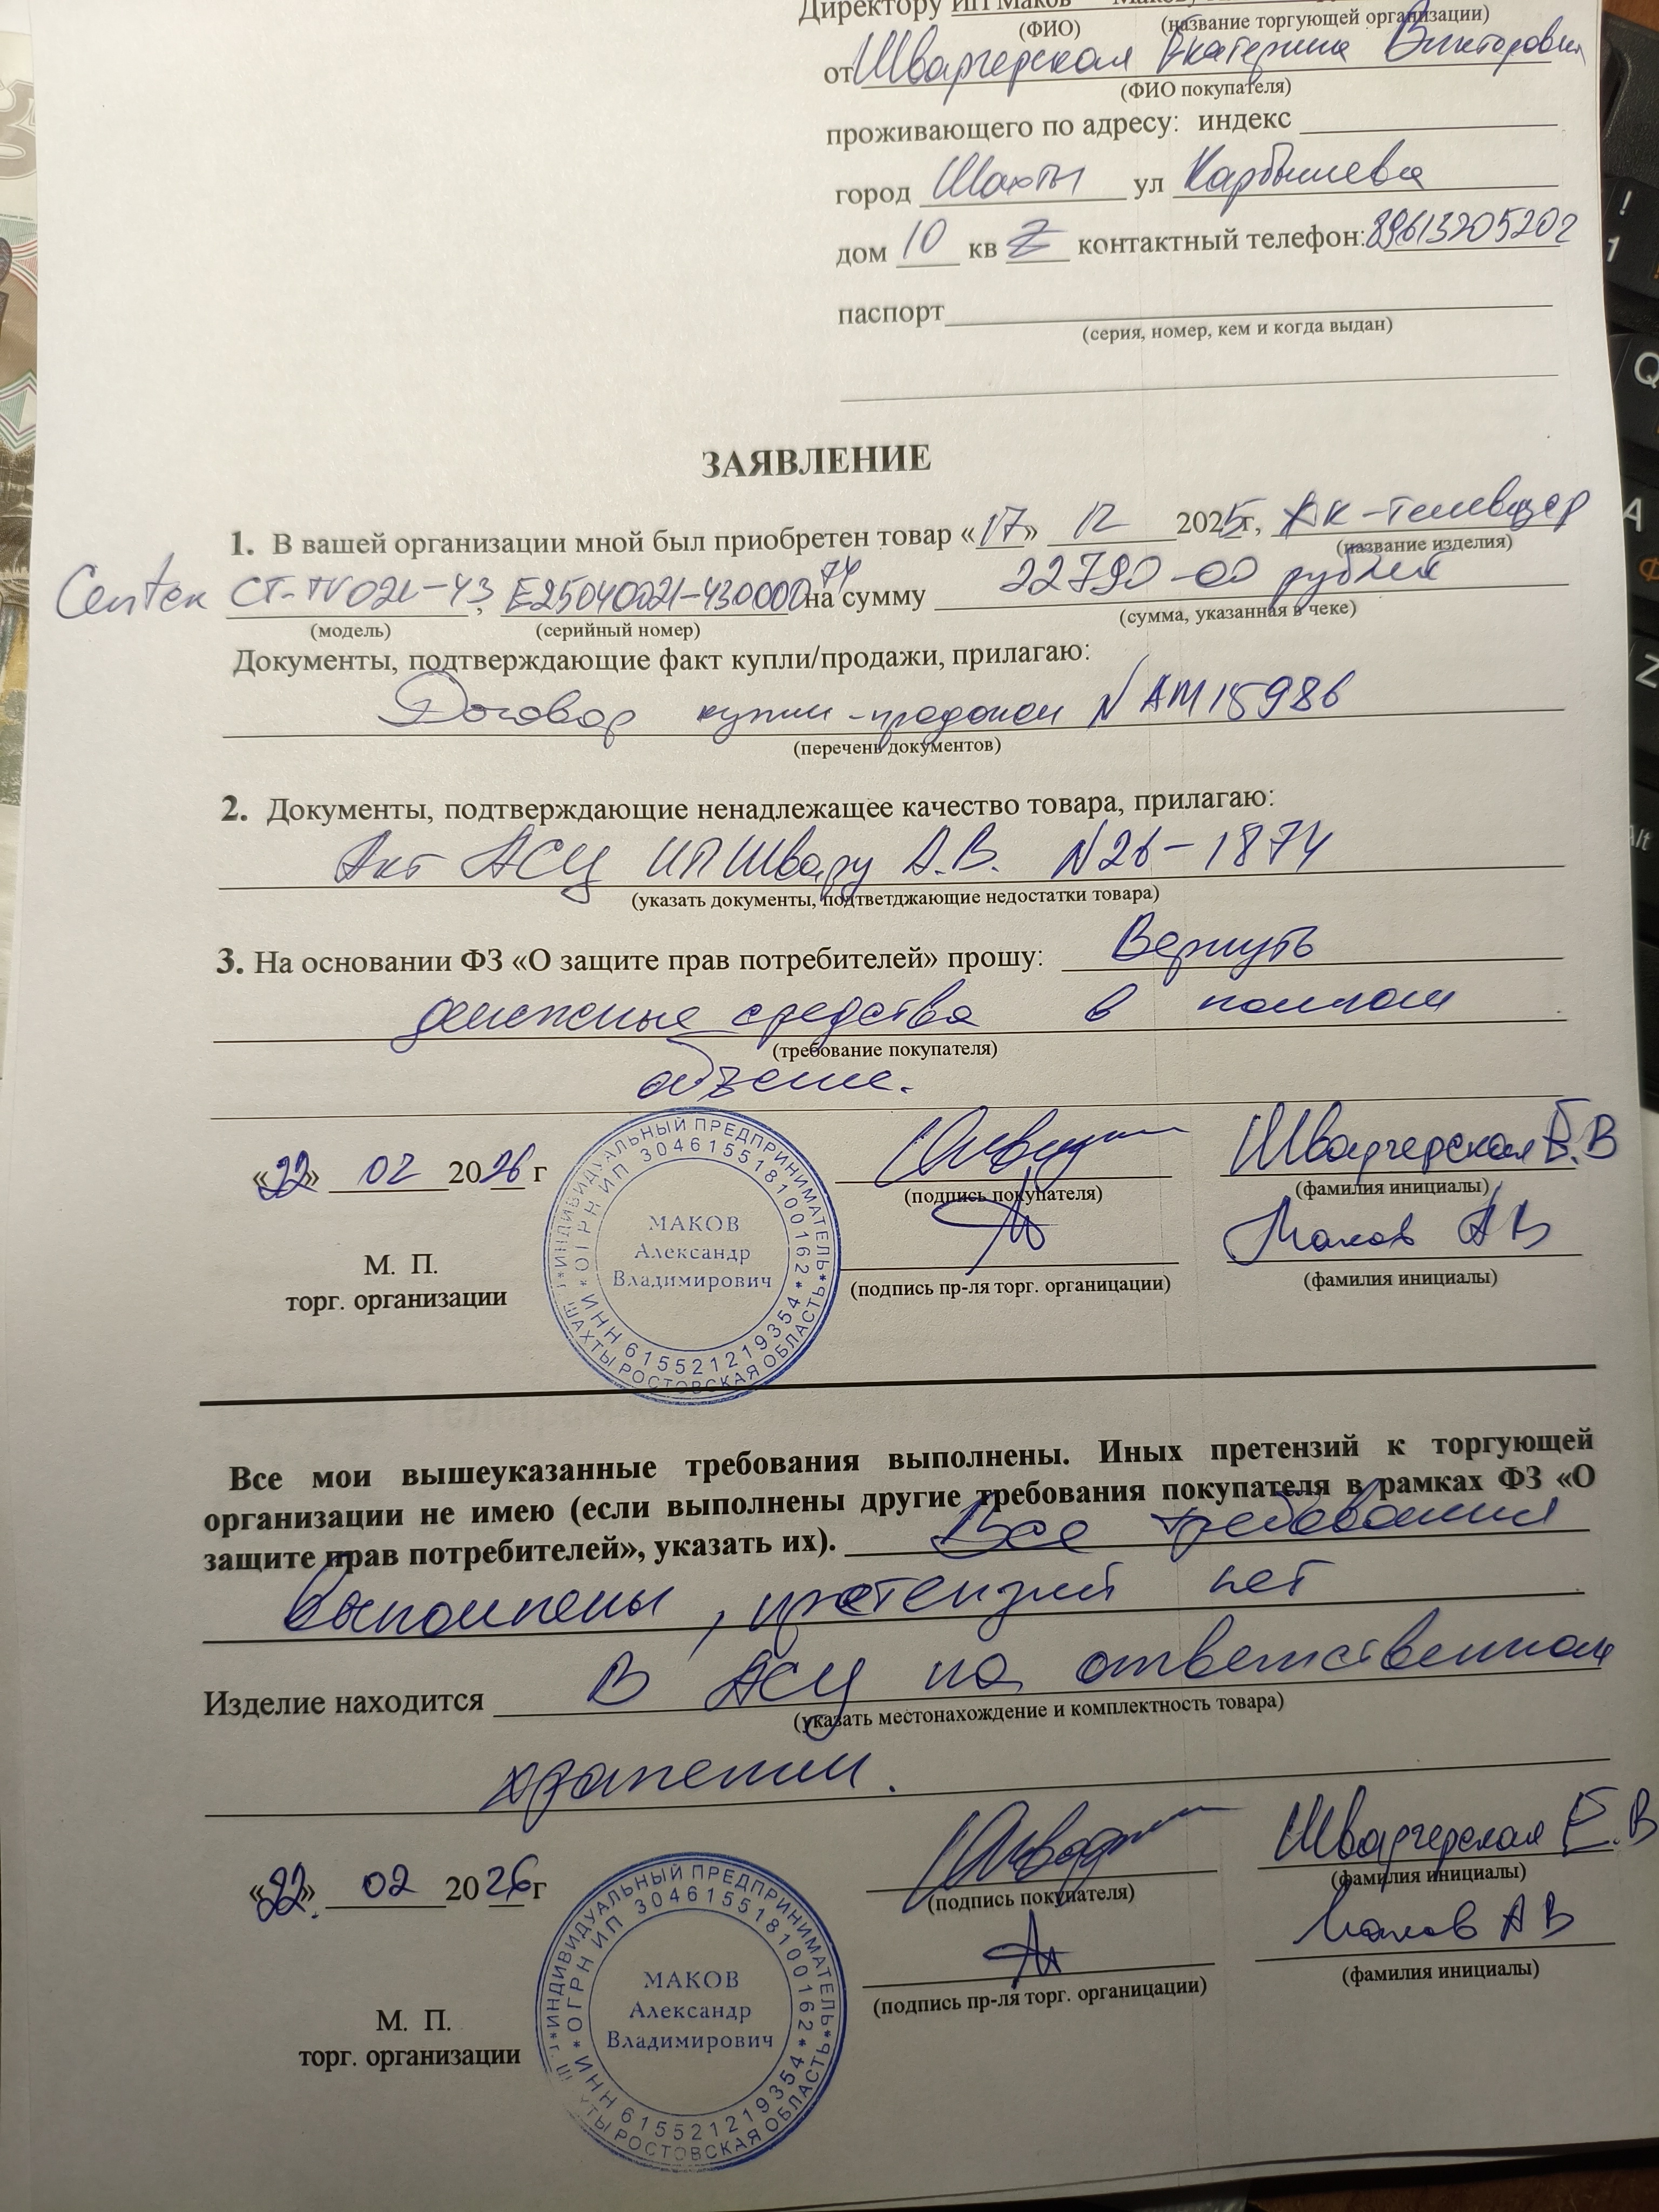 Директору ИП Маков
(ФИО) (название торгующей организации)
от Шваргерская Екатерина Викторовна
(ФИО покупателя)
проживающего по адресу: индекс
город Шахты ул Карбышева
дом 10 кв 2 контактный телефон: 89613205202
паспорт
(серия, номер, кем и когда выдан)
ЗАЯВЛЕНИЕ
1. В вашей организации мной был приобретен товар «17» 12 2025г, ЖК-телевизор
(название изделия)
Centek CT-TV02L-43, на сумму 22790-00 рублей
(модель) (серийный номер) (сумма, указанная в чеке)
Документы, подтверждающие факт купли/продажи, прилагаю:
Договор купли-продажи N АМ15986
(перечень документов)
2. Документы, подтверждающие ненадлежащее качество товара, прилагаю:
Акт АСЦ ИП Шварц А.В. N26-1874
(указать документы, подтветджающие недостатки товара)
3. На основании ФЗ «О защите прав потребителей» прошу: Вернуть
денежные средства в полном
(требование покупателя)
объеме.
«22» 02 2026 г
(подпись покупателя) Шваргерская Е.В
(фамилия инициалы)
Маков АВ
М. П.
торг. организации
(подпись пр-ля торг. органицации) (фамилия инициалы)
*ИНДИВИДУАЛЬНЫЙ ПРЕДПРИНИМАТЕЛЬ* г. ШАХТЫ РОСТОВСКАЯ ОБЛАСТЬ
*ОГРН ИП 304615518100162* ИНН 615521219354
МАКОВ
Александр
Владимирович
Все мои вышеуказанные требования выполнены. Иных претензий к торгующей
организации не имею (если выполнены другие требования покупателя в рамках ФЗ «О
защите прав потребителей», указать их). Все требования
выполнены, претензий нет
Изделие находится В АСЦ на ответственном
(указать местонахождение и комплектность товара)
хранении.
«22» 02 2026г
(подпись покупателя) Шваргерская Е.В
(фамилия инициалы)
Маков АВ
М. П.
торг. организации
(подпись пр-ля торг. органицации) (фамилия инициалы)
*ИНДИВИДУАЛЬНЫЙ ПРЕДПРИНИМАТЕЛЬ* г. ШАХТЫ РОСТОВСКАЯ ОБЛАСТЬ
*ОГРН ИП 304615518100162* ИНН 615521219354
МАКОВ
Александр
Владимирович